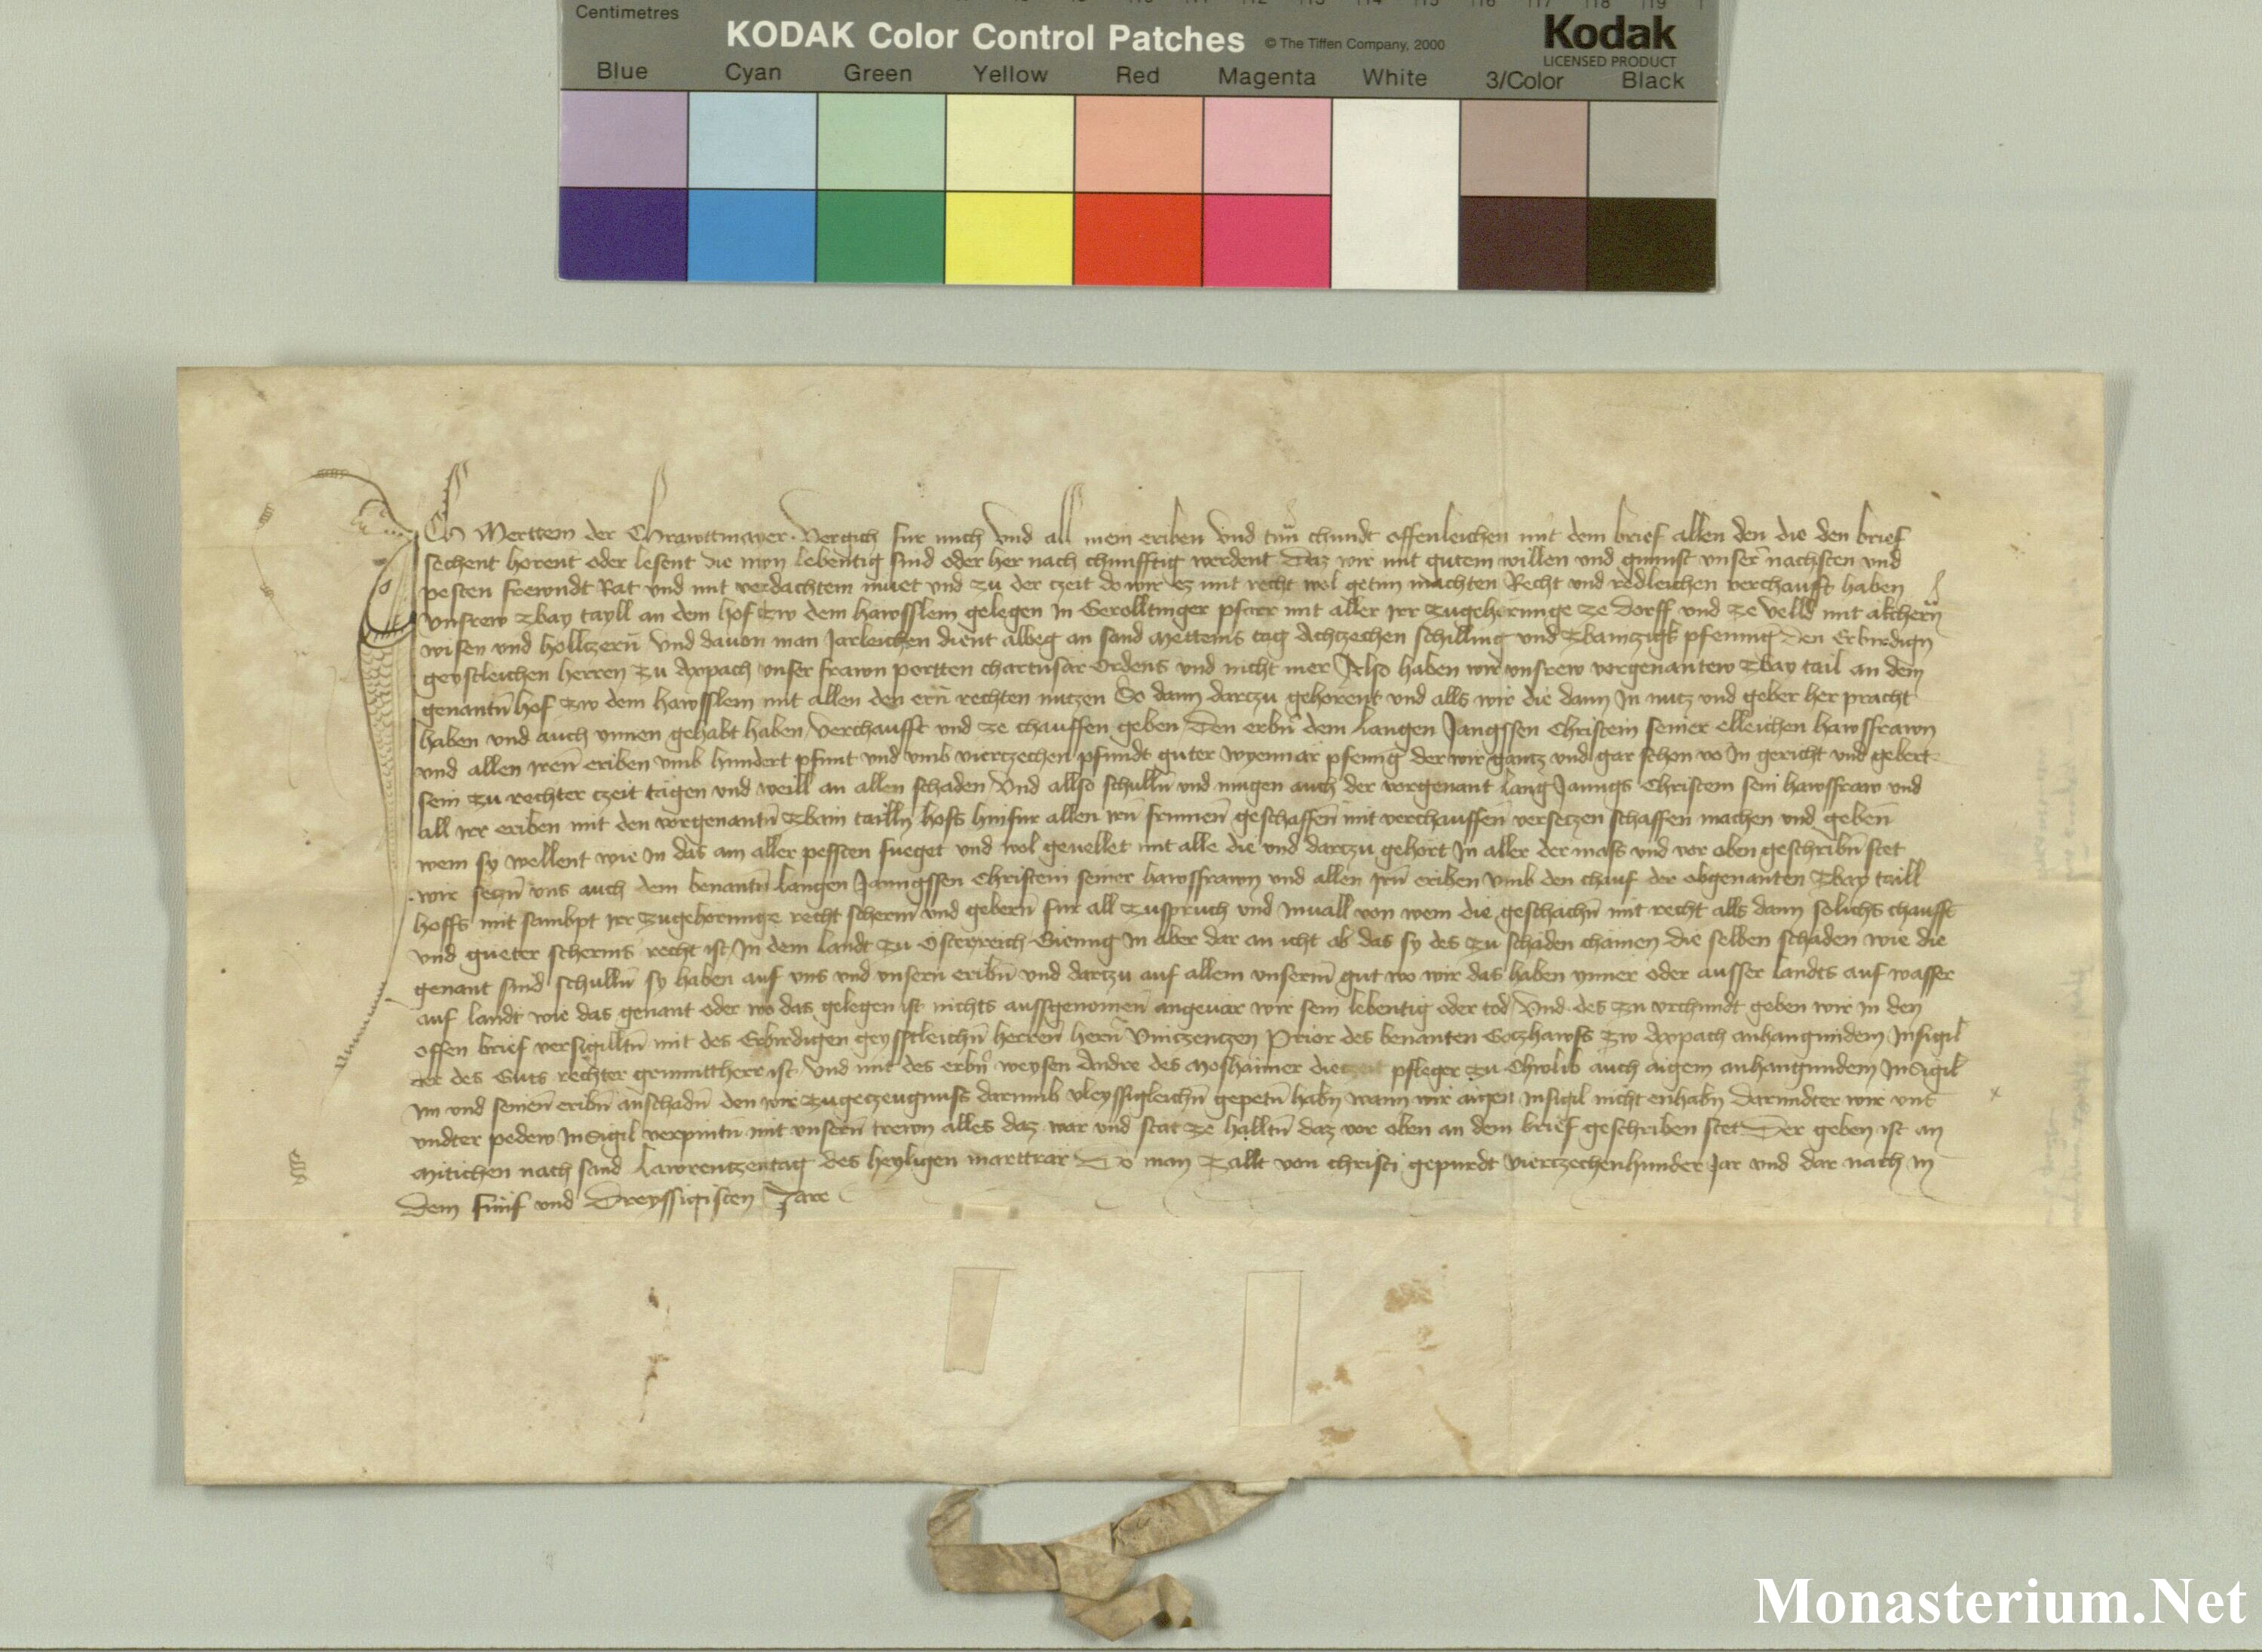 Centimetres
KODAK Color Control Patches © The Tiffen Company, 2000 Kodak
LICENSED PRODUCT
Blue Cyan Green Yellow Red Magenta White 3/Color Black
Ich Merttem der Chrawttmayer Vergich fur mich und all mein eriben und tun chundt offenleichen mit dem brief allen den die den brief
sechent horent oder lesent die nwn lebentig sind oder her nach chunfftig werdent Daz wir mit gutem willen und gunnst unser nachsten und
pesten frewndt Rat und mit verdachtem muet und zu der czeit do wir ez mit recht wol getun machten Recht und redleichen verchaufft haben
unsrew zbay tayll an dem hof zw dem hawsslem gelegen in Gerolltinger pfarr mit aller irr zugehorunge ze dorff und ze velld mit akchern
wisen und hollczern und davon man Jarleichen dient albeg an sand Mertteins tag Achczechen schilling und zbainczigk pfennig den Erbirdign
geystleichen herren zu Axpach unser frawn portten chartusar Ordens und nicht mer Also haben wir unsrew vorgenantew zbay tail an dem
genantn hof zw dem hawsslem mit allen den ern rechten nutzen So dann darczu gehorent und alls wir die dann in nutz und geber her pracht
haben und auch ynnen gehabt haben verchaufft und ze chauffen geben den erbn dem Langen Jangssen Christein seiner elleichen hawsfrawn
und allen iren eriben umb hundert pfunt und umb vierczechen pfundt guter wyennar pfenig der wir gantz und gar schon vo in gericht und gebert
sein zu rechter czeit tagen und weill an allen schaden Und allso schulln und mugen auch der vorgenant Lang Janngs Christem sein hawsfraw und
all irr eriben mit den vorgenantn zbain tailln hofs hinfur allen irn frumen geschaffen mit verchauffen verseczen schaffen machen und geben
wem sy wellent wie in das am aller pessten fueget und wol gevellet mit alle die und darczu gehort in aller der mass und vor oben geschribn stet
wir seczn uns auch dem benantn Langen Janngssen Christein seiner hawsfrawn und allen irn eriben umb den chauf der obgenanten zbay taill
hoffs mit sambpt irr zugehorunge recht scherm und gebern fur all zuspruch und invall von wem die geschachn mit recht alls dann solichs chauffs
und gueter scherms recht ist in dem Landt zu Osterreich Gienng in aber dar an icht ab das sy des zu schaden chamen die selben schaden wie die
genant sind schulln sy haben auf uns und unsern eribn und darczu auf allem unserm gut wo wir das haben ynner oder ausser landts auf wasser
auf landt wie das genant oder wo das gelegen ist nichts aussgenomen angevar wir sein lebentig oder tod Und des zu urchundt geben wir in den
offen brief versigilltn mit des Erbirdigen geysstleichn herren hern Vinczenczen Prior des benanten Goczhawss zw Axpach anhangundem Insigil
der des Guts rechter grunttherr ist Und mit des erbn weysen Andre des Moshaimer dieczeit pfleger zu auch aigem anhangundem Insigil
im und seinen eribn anschadn den wir zu geczeugnuss darumb vleyssigleichn gepetn habn wann wir aigen insigil nicht enhabn darundter wir uns
undter pedew insigil verpintn mit unsern trewn alles daz war und stat ze halltn daz vor oben an dem brief geschriben stet Der geben ist an
Mitichen nach sand Lawrentzentag des heyligen marttrar Do man zallt von christi gepurdt vierczechenhunder Jar und dar nach in
dem funf und dreyssigisten Jare
Monasterium.Net